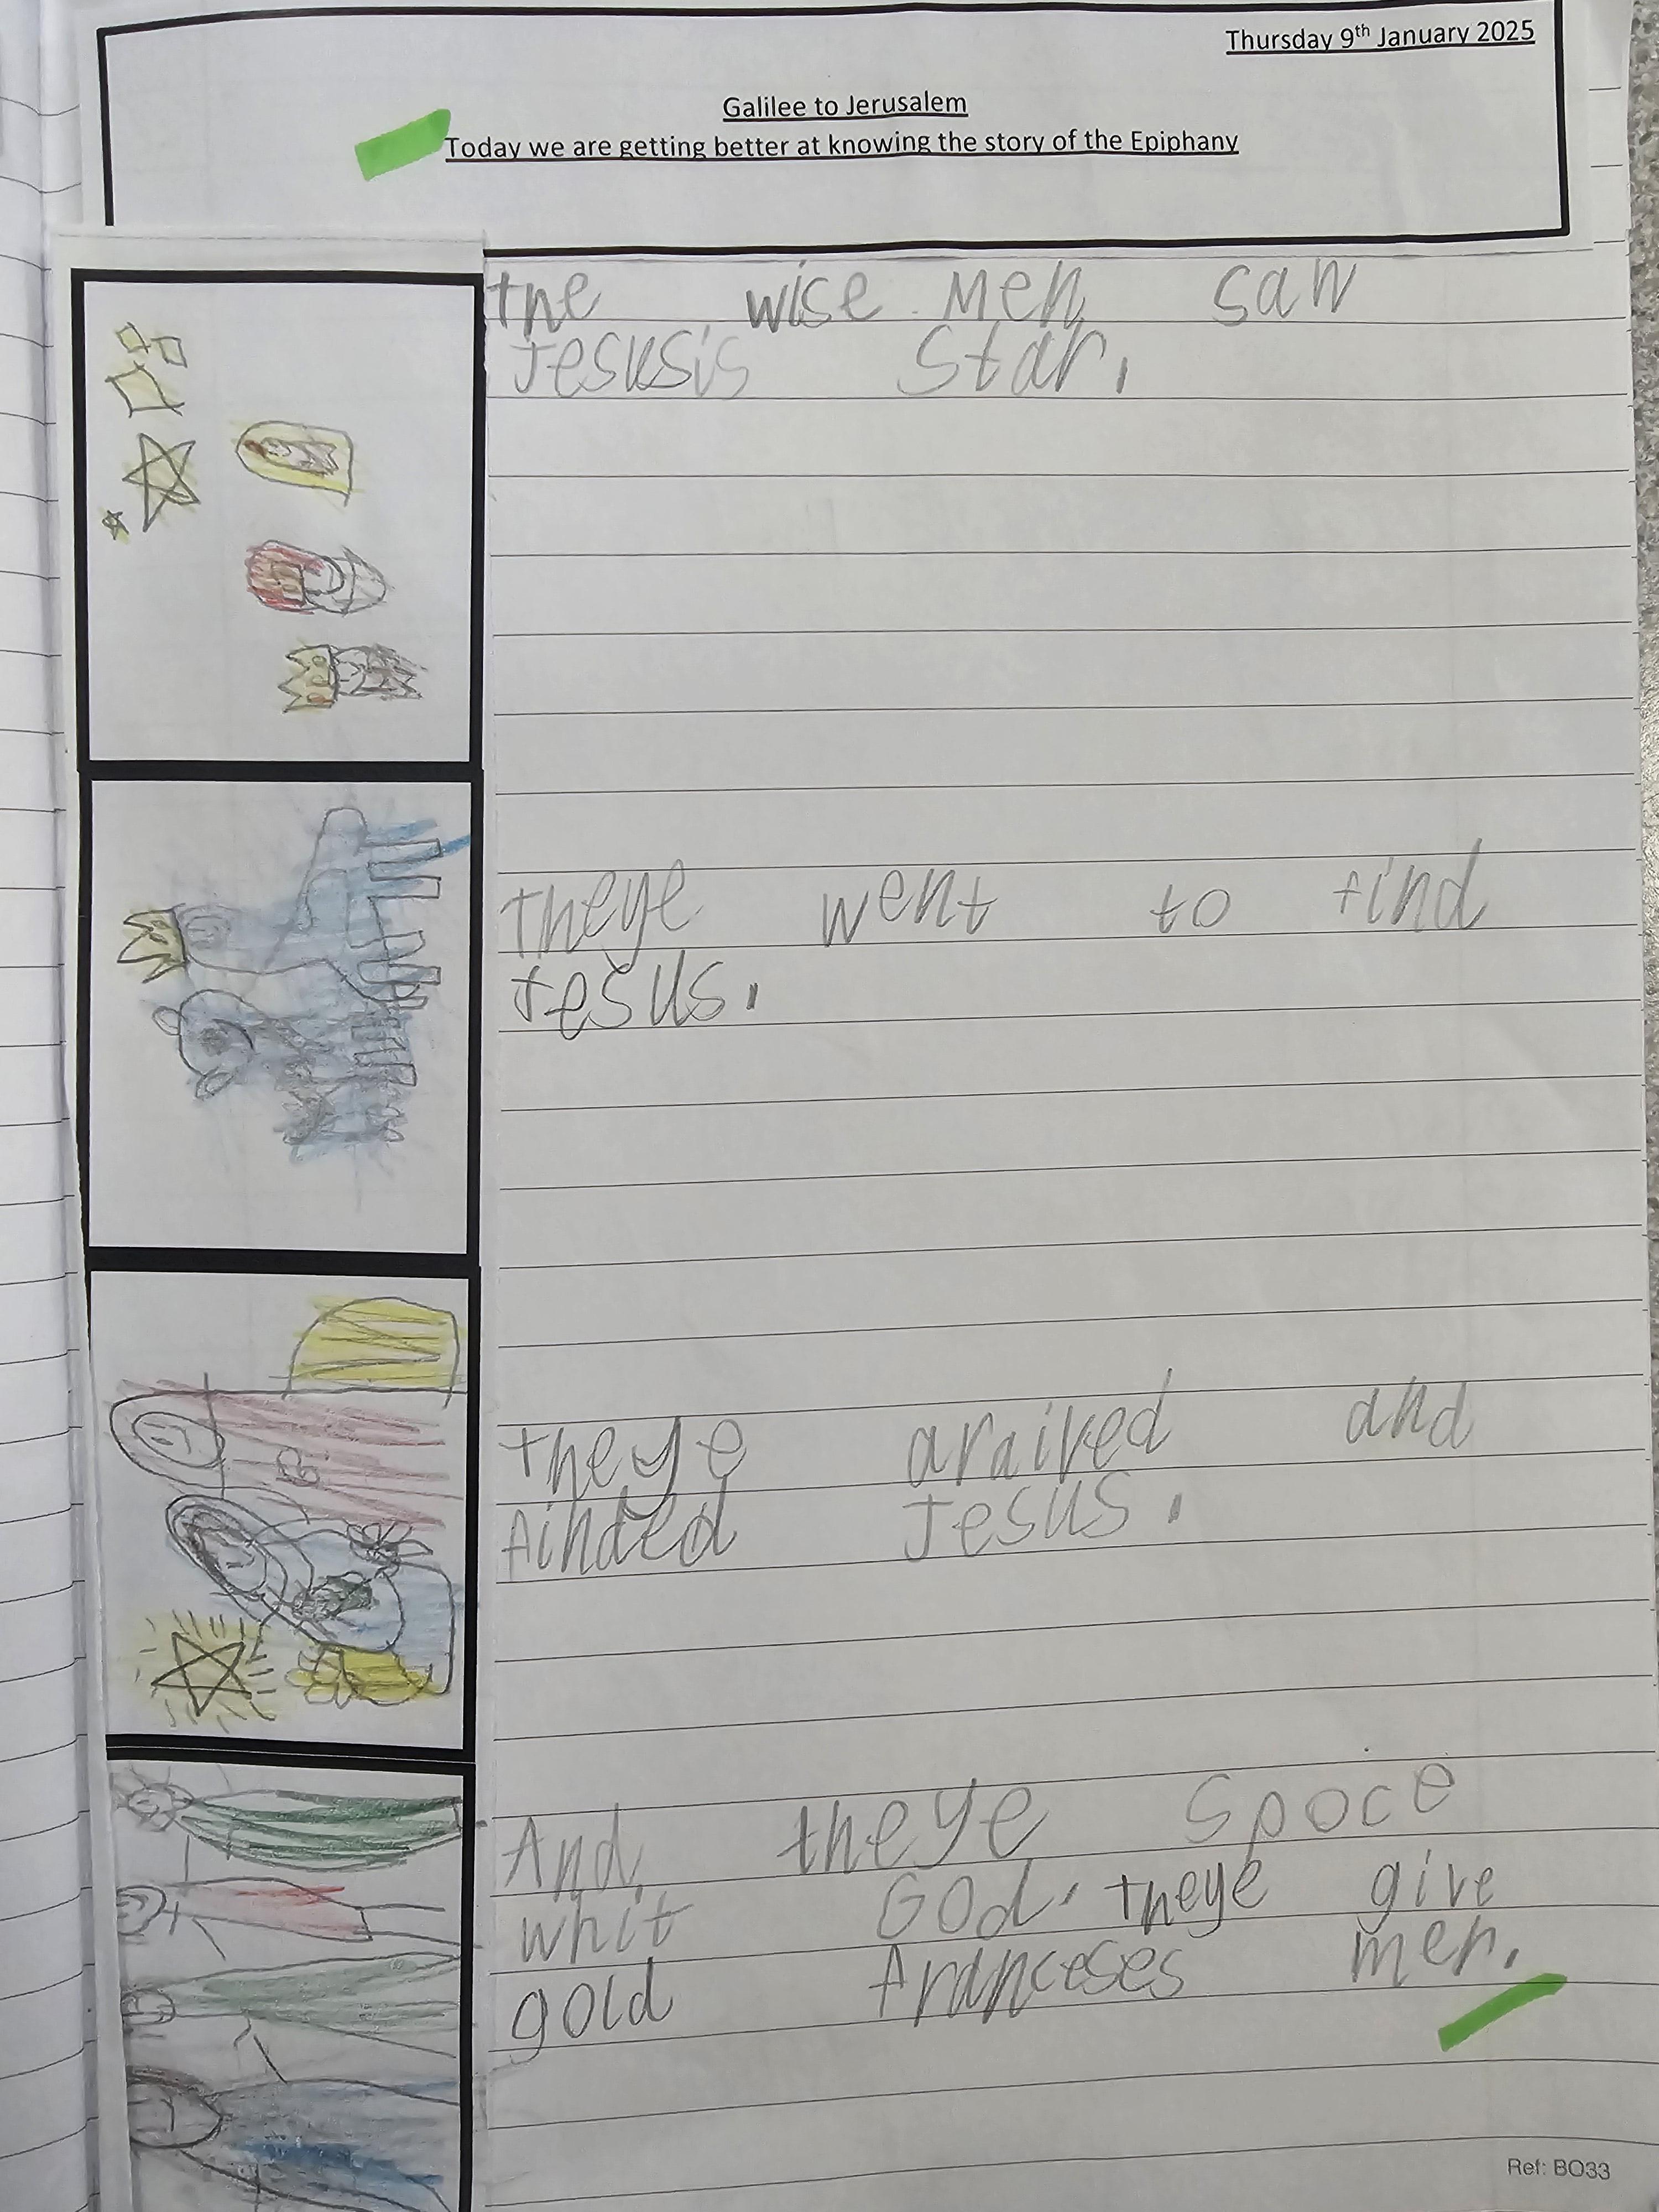 Thursday 9th January 2025
Galilee to Jerusalem
Today we are getting better at knowing the story of the Epiphany
the wise men saw
Jesusis star.
theye went to find
Jesus.
theye araived and
finded Jesus.
And theye spoce
whit God. theye give
gold franceses men.
Ref: BO33